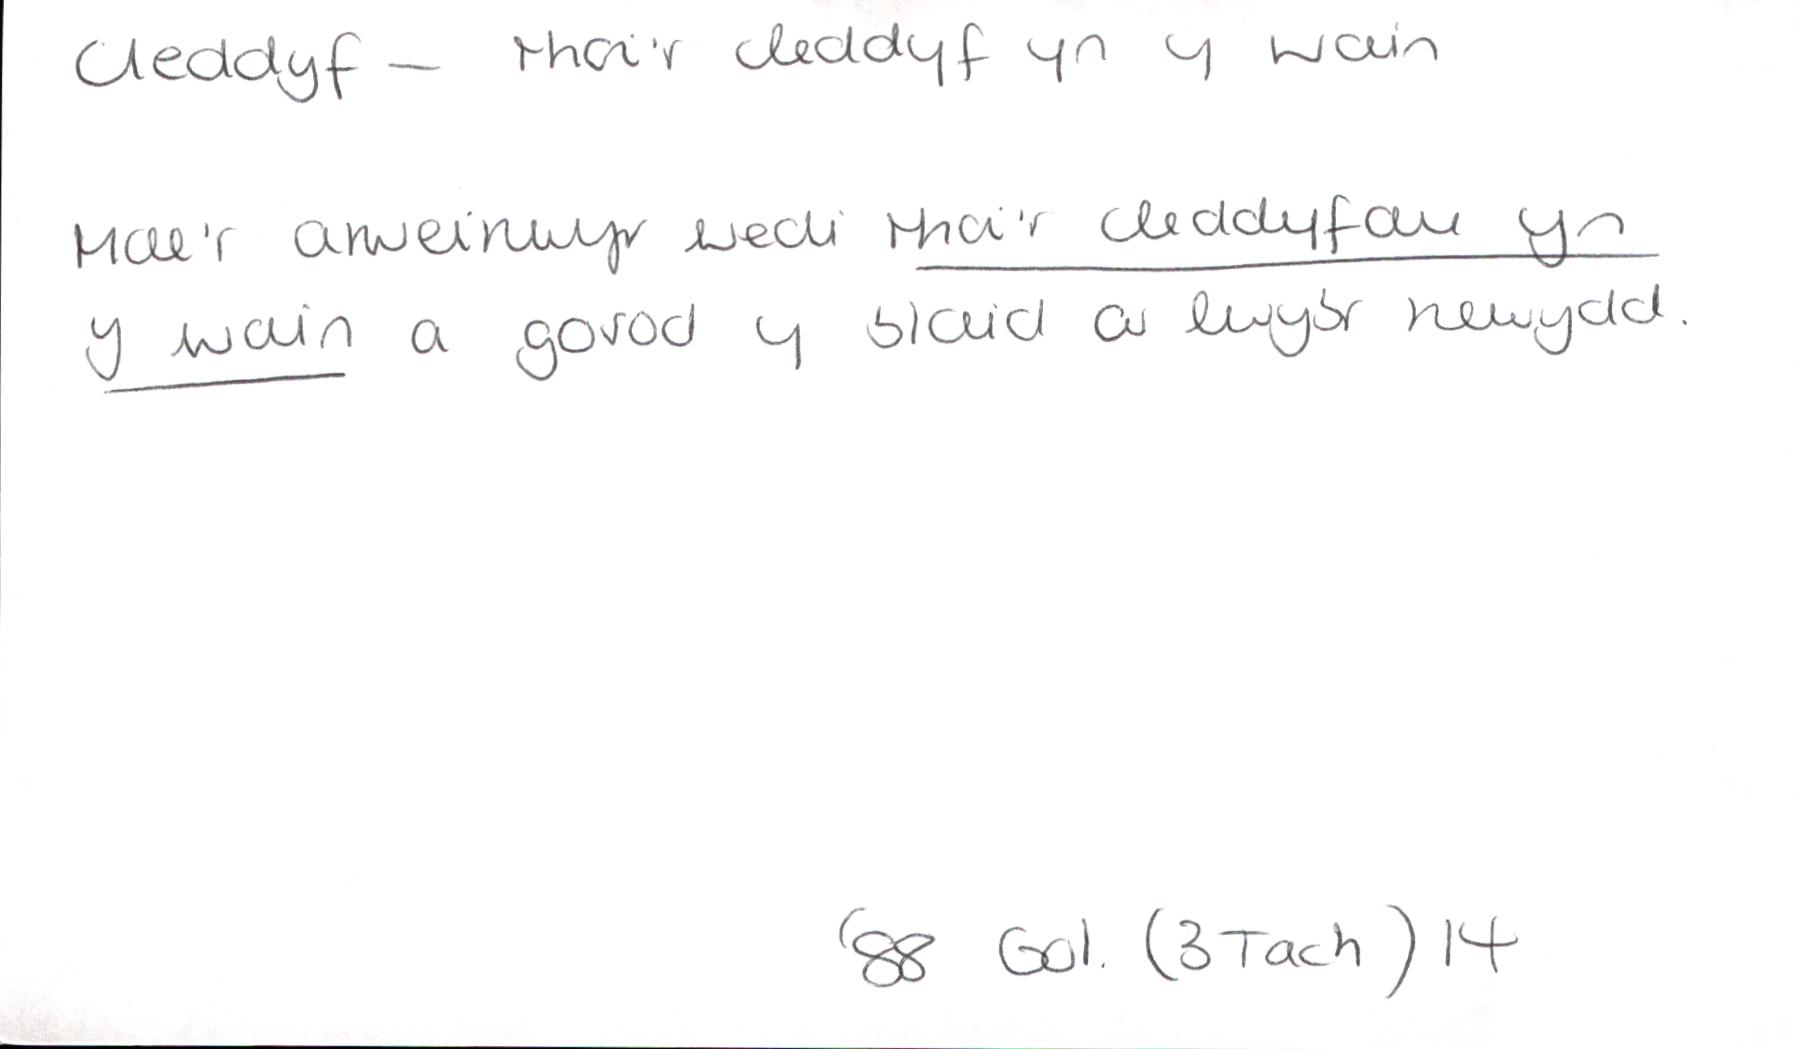 Cleddyf – rhoi'r cleddyf yn y wain
Mae'r arweinwyr wedi rhoi'r cleddyfau yn
y wain a gosod y blaid ar lwybr newydd.
'88 Gol. (3 Tach) 14